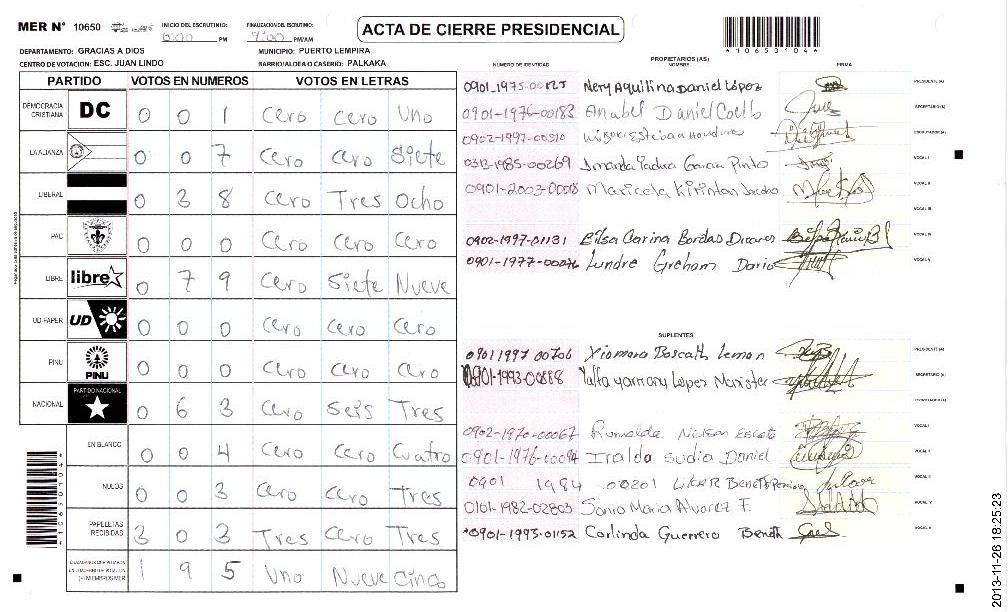 MER N° 10650 INICIO DEL ESCRUTINIO: PM FINALIZACIÓN DEL ESCRUTINIO: 7:00 PM/AM ACTA DE CIERRE PRESIDENCIAL *10650104*
DEPARTAMENTO: GRACIAS A DIOS MUNICIPIO: PUERTO LEMPIRA
CENTRO DE VOTACION: ESC. JUAN LINDO BARRIO/ALDEA O CASERIO: PALKAKA
PARTIDO VOTOS EN NUMEROS VOTOS EN LETRAS
DEMOCRACIA CRISTIANA DC 0 0 1 Cero Cero Uno
LA ALIANZA 0 0 7 Cero Cero Siete
LIBERAL 0 3 8 Cero Tres Ocho
PAC 0 0 0 Cero Cero Cero
LIBRE libre 0 7 9 Cero Siete Nueve
UD-FAPER UD 0 0 0 Cero Cero Cero
PINU PINU 0 0 0 Cero Cero Cero
NACIONAL PARTIDO NACIONAL 0 6 3 Cero Seis Tres
EN BLANCO 0 0 4 Cero Cero Cuatro
NULOS 0 0 3 Cero Cero Tres
PAPELETAS RECIBIDAS 3 0 3 Tres Cero Tres
1 9 5 Uno Nueve Cinco
PROPIETARIOS (AS)
NUMERO DE IDENTIDAD NOMBRE FIRMA
0901-1975-00125 Nery Aquilina Daniel López PRESIDENTE (A)
0901-1976-00183 Anabel Daniel SECRETARIO (A)
0902-1997-00310 Esteban ESCRUTADOR (A)
0313-1985-00269 Garcia Pinto VOCAL I
0901-2003-00018 Maricela VOCAL II
VOCAL III
0902-1997-01131 Elsa Carina Bordas VOCAL IV
0901-1977-00076 Lundre Greham Dario VOCAL V
SUPLENTES
0901 1997 00706 Xiomara Boscath Leman PRESIDENTE (A)
0901-1993-00888 Yalfa Lopez SECRETARIO (A)
ESCRUTADOR (A)
0902-1970-00067 Rumalda Nelson VOCAL I
0901-1976-00094 Iralda Sudia Daniel VOCAL II
0901 1984 00201 VOCAL III
0101-1982-02803 Sonia Maria Alvarez F. VOCAL IV
0901-1993-01152 Carlinda Guerrero VOCAL V
*10650104*
2013-11-26 18:25:23